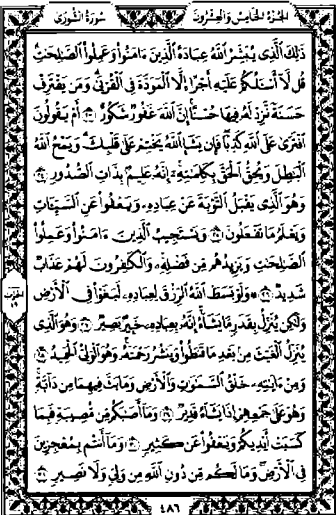 الجزء الخامس والعشرون سورة الشورى
ذَٰلِكَ ٱلَّذِى يُبَشِّرُ ٱللَّهُ عِبَادَهُ ٱلَّذِينَ ءَامَنُوا۟ وَعَمِلُوا۟ ٱلصَّٰلِحَٰتِ
قُل لَّآ أَسْـَٔلُكُمْ عَلَيْهِ أَجْرًا إِلَّا ٱلْمَوَدَّةَ فِى ٱلْقُرْبَىٰ وَمَن يَقْتَرِفْ
حَسَنَةً نَّزِدْ لَهُۥ فِيهَا حُسْنًا إِنَّ ٱللَّهَ غَفُورٌ شَكُورٌ ٢٣ أَمْ يَقُولُونَ
ٱفْتَرَىٰ عَلَى ٱللَّهِ كَذِبًا فَإِن يَشَإِ ٱللَّهُ يَخْتِمْ عَلَىٰ قَلْبِكَ وَيَمْحُ ٱللَّهُ
ٱلْبَٰطِلَ وَيُحِقُّ ٱلْحَقَّ بِكَلِمَٰتِهِۦٓ إِنَّهُۥ عَلِيمٌۢ بِذَاتِ ٱلصُّدُورِ ٢٤
وَهُوَ ٱلَّذِى يَقْبَلُ ٱلتَّوْبَةَ عَنْ عِبَادِهِۦ وَيَعْفُوا۟ عَنِ ٱلسَّيِّـَٔاتِ
وَيَعْلَمُ مَا تَفْعَلُونَ ٢٥ وَيَسْتَجِيبُ ٱلَّذِينَ ءَامَنُوا۟ وَعَمِلُوا۟
ٱلصَّٰلِحَٰتِ وَيَزِيدُهُم مِّن فَضْلِهِۦ وَٱلْكَٰفِرُونَ لَهُمْ عَذَابٌ
شَدِيدٌ ٢٦ وَلَوْ بَسَطَ ٱللَّهُ ٱلرِّزْقَ لِعِبَادِهِۦ لَبَغَوْا۟ فِى ٱلْأَرْضِ
وَلَٰكِن يُنَزِّلُ بِقَدَرٍ مَّا يَشَآءُ إِنَّهُۥ بِعِبَادِهِۦ خَبِيرٌۢ بَصِيرٌ ٢٧ وَهُوَ ٱلَّذِى
يُنَزِّلُ ٱلْغَيْثَ مِنۢ بَعْدِ مَا قَنَطُوا۟ وَيَنشُرُ رَحْمَتَهُۥ وَهُوَ ٱلْوَلِىُّ ٱلْحَمِيدُ ٢٨
وَمِنْ ءَايَٰتِهِۦ خَلْقُ ٱلسَّمَٰوَٰتِ وَٱلْأَرْضِ وَمَا بَثَّ فِيهِمَا مِن دَآبَّةٍ
وَهُوَ عَلَىٰ جَمْعِهِمْ إِذَا يَشَآءُ قَدِيرٌ ٢٩ وَمَآ أَصَٰبَكُم مِّن مُّصِيبَةٍ فَبِمَا
كَسَبَتْ أَيْدِيكُمْ وَيَعْفُوا۟ عَن كَثِيرٍ ٣٠ وَمَآ أَنتُم بِمُعْجِزِينَ
فِى ٱلْأَرْضِ وَمَا لَكُم مِّن دُونِ ٱللَّهِ مِن وَلِىٍّ وَلَا نَصِيرٍ ٣١
٤٨٦